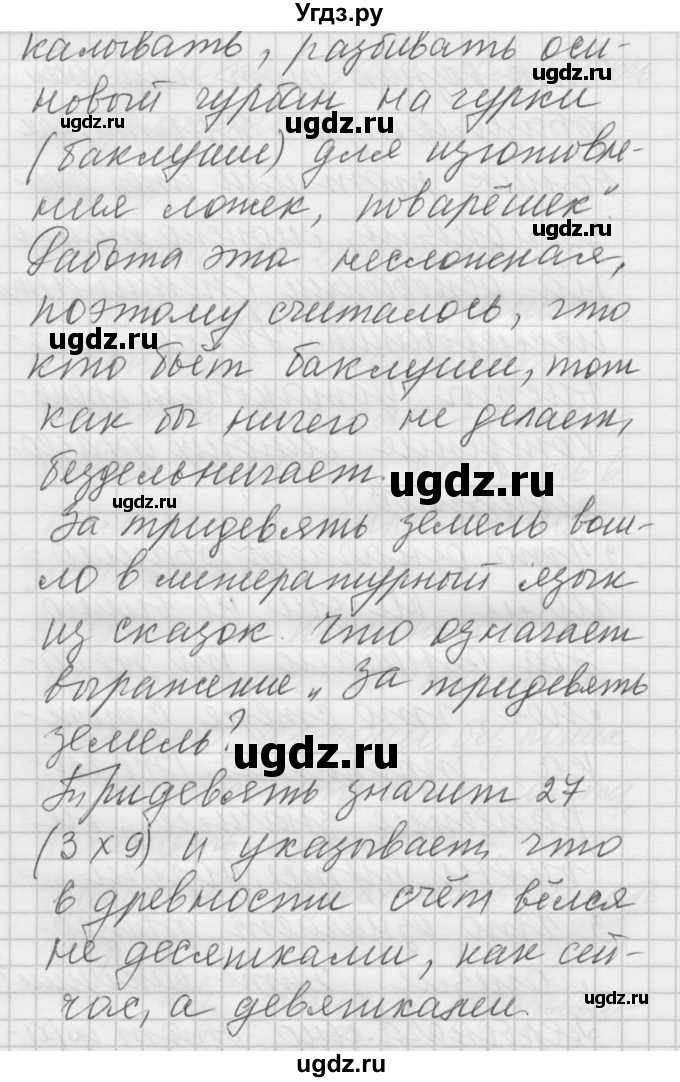 Угдз.ру
калывать, разбивать оси-
ugdz.ru
новый чурбан на чурки
ugdz.ru ugdz.ru
(баклуши) для изготовле-
ния ложек, поварёшек".
ugdz.ru
Работа эта несложная,
поэтому считалось, что
ugdz.ru
кто бьёт баклуши, тот
как бы ничего не делает,
бездельничает.
ugdz.ru
ugdz.ru
За тридевять земель вош-
ло в литературный язык
из сказок. Что означает
выражение „За тридевять
земель?
ugdz.ru
Тридевять значит 27
(3 х 9) и указывает, что
в древности счёт вёлся
не десятками, как сей-
час, а девятками.
ugdz.ru
ugdz.ru